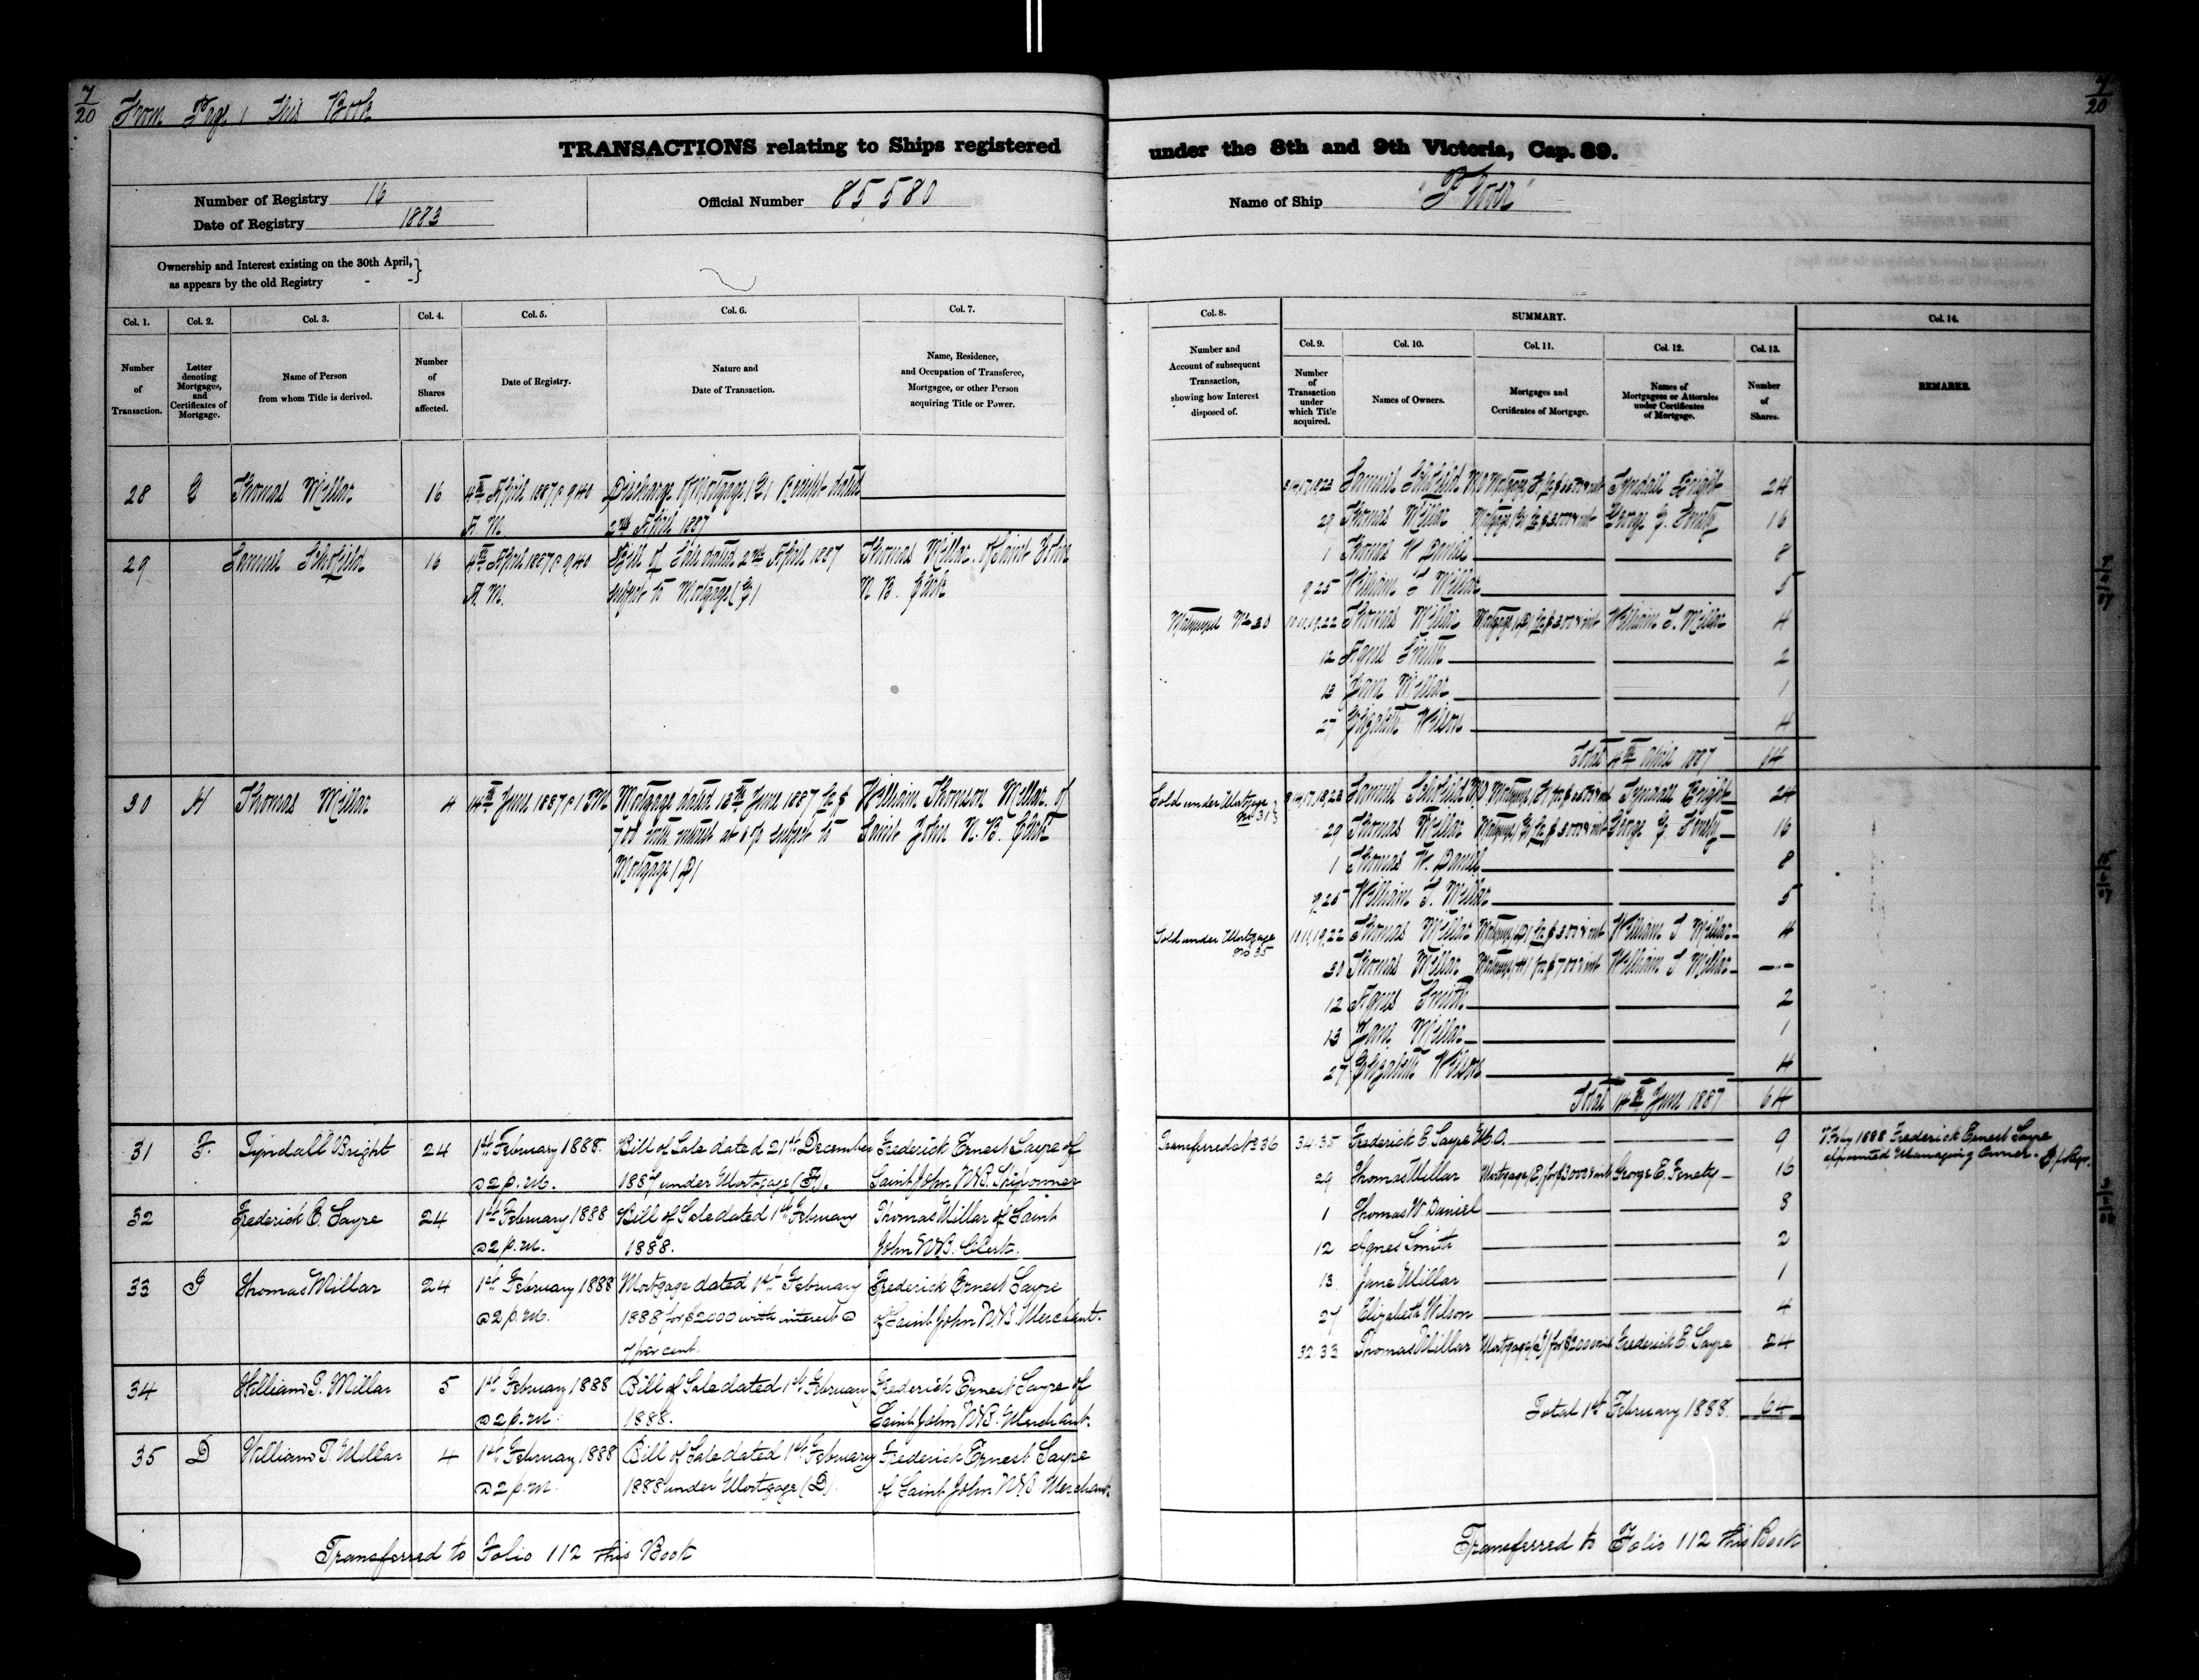 7/20
From Page 1 this Book
7/20
TRANSACTIONS relating to Ships registered under the 8th and 9th Victoria, Cap. 89.
Number of Registry 16
Date of Registry 1883
Official Number 85580
Name of Ship
Ownership and Interest existing on the 30th April,
as appears by the old Registry - -
Col. 1. Number of Transaction.
Col. 2. Letter denoting Mortgages, and Certificates of Mortgage.
Col. 3. Name of Person from whom Title is derived.
Col. 4. Number of Shares affected.
Col. 5. Date of Registry.
Col. 6. Nature and Date of Transaction.
Col. 7. Name, Residence, and Occupation of Transferee, Mortgagee, or other Person acquiring Title or Power.
Col. 8. Number and Account of subsequent Transaction, showing how Interest disposed of.
SUMMARY.
Col. 9. Number of Transaction under which Title acquired.
Col. 10. Names of Owners.
Col. 11. Mortgages and Certificates of Mortgage.
Col. 12. Names of Mortgagees or Attornies under Certificates of Mortgage.
Col. 13. Number of Shares.
Col. 14. REMARKS.
28 Thomas Millar 16 4th April 1887 @ 9.40 Discharge of Mortgage Receipt dated
A.M. 2nd April 1887
29 Samuel Schofield 16 4th April 1887 @ 9.40 Bill of Sale dated 2nd April 1887 Thomas Millar of Saint John
A.M. subject to Mortgage N.B. Clerk
30 H Thomas Millar 4 14th June 1887 @ 1 P.M. Mortgage dated 13th June 1887 for $ William Thomson Millar of
700 with interest at subject to Saint John N.B. Clerk
Mortgage (D)
31 F. Tyndall Bright 24 1st February 1888. Bill of Sale dated 21st December Frederick Ernest Sayre of
@ 2 p.m. 1887 under Mortgage (F). Saint John N.B. Shipowner
32 Frederick E. Sayre 24 1st February 1888 Bill of Sale dated 1st February Thomas Millar of Saint
@ 2 p.m. 1888. John N.B. Clerk.
33 Thomas Millar 24 1st February 1888 Mortgage dated 1st February Frederick Ernest Sayre
@ 2 p.m. 1888 for $2000 with interest @ of Saint John N.B. Merchant.
7 per cent.
34 William T. Millar 5 1st February 1888 Bill of Sale dated 1st February Frederick Ernest Sayre of
@ 2 p.m. 1888. Saint John N.B. Merchant.
35 D William T. Millar 4 1st February 1888 Bill of Sale dated 1st February Frederick Ernest Sayre
@ 2 p.m. 1888 under Mortgage (D). of Saint John N.B. Merchant.
Transferred to Folio 112 this Book
Samuel Schofield M.O. Mortgage Tyndall Bright 24
29 Thomas Millar Mortgage George E. Fenety 16
1 Thomas W Daniel 8
9.25 William T Millar 5
Mortgaged No 30 10.11.19.22 Thomas Millar Mortgage (D) William T. Millar 4
12 Agnes Smith 2
13 Jane Millar 1
27 Elizabeth Wilson 4
Total 4th April 1887 64
Sold under Mortgage No 31 Samuel Schofield M.O. Mortgage Tyndall Bright 24
29 Thomas Millar Mortgage George E. Fenety 16
1 Thomas W. Daniel 8
9.25 William T. Millar 5
Sold under Mortgage No 35 10.11.19.22 Thomas Millar Mortgage (D) William T Millar 4
30 Thomas Millar Mortgage (H) for $700 & int William T Millar
12 Agnes Smith 2
13 Jane Millar 1
27 Elizabeth Wilson 4
Total 14th June 1887 64
Transferred No 36 34.35 Frederick E. Sayre M.O. 9 7 Feby 1888 Frederick Ernest Sayre
appointed Managing Owner.
29 Thomas Millar Mortgage (E) for $3000 & int George E. Fenety 16
1 Thomas W. Daniel 8
12 Agnes Smith 2
13 Jane Millar 1
27 Elizabeth Wilson 4
32.33 Thomas Millar Mortgage for $2000 Frederick E. Sayre 24
Total 1st February 1888. 64
Transferred to Folio 112 this Book